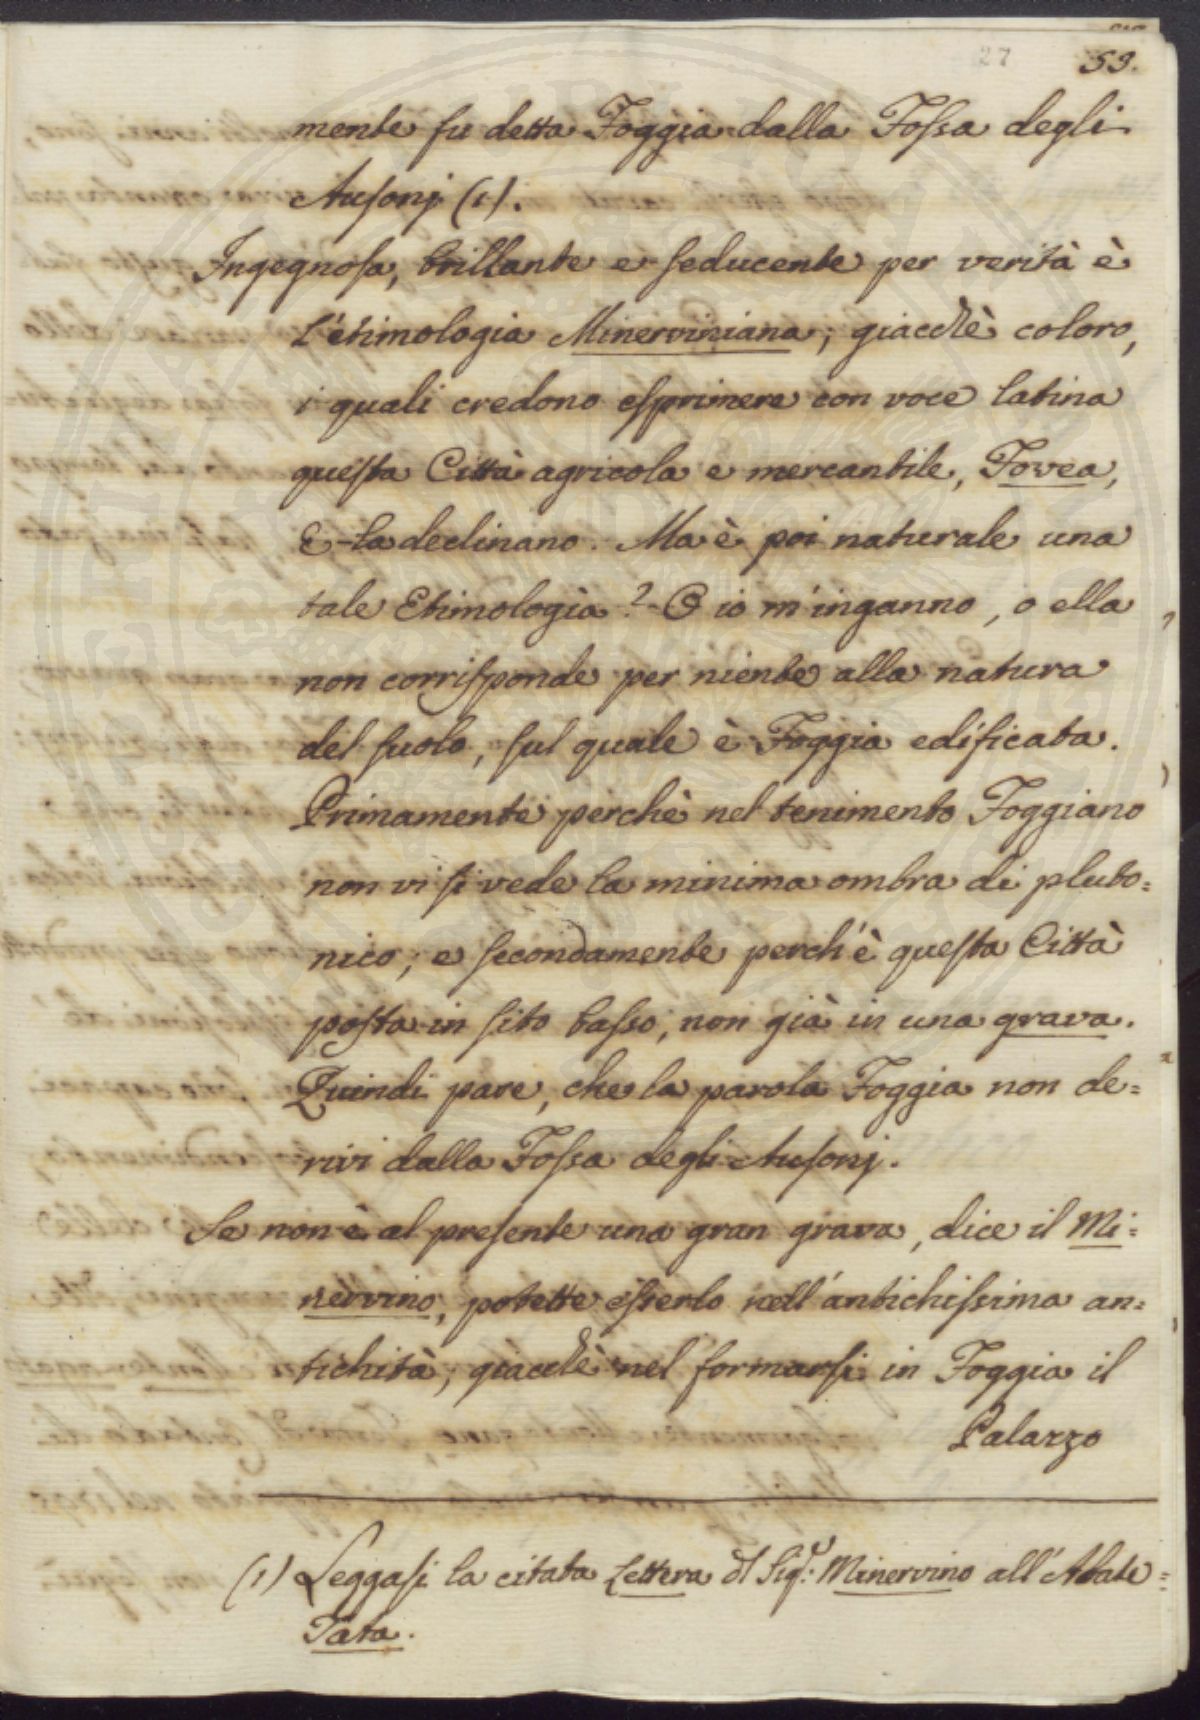 27
53.
mente fu detta Foggia dalla Fossa degli
Ausonj (1).
Ingegnosa, brillante e seducente per verità è
l'etimologia Minerviniana; giacchè coloro,
i quali credono esprimere con voce latina
questa Città agricola e mercantile, Fovea,
E la declinano. Ma è poi naturale una
tale Etimologia? O io m'inganno, o ella
non corrisponde per niente alla natura
del suolo, sul quale è Foggia edificata.
Primamente perchè nel tenimento Foggiano
non vi si vede la minima ombra di pluto=
nico; e secondamente perch'è questa Città
posta in sito basso, non già in una grava.
Quindi pare, che la parola Foggia non de=
rivi dalla Fossa degli Ausonj.
Se non è al presente una gran grava, dice il Mi=
nervino, potette esserlo nell'antichissima an=
tichità; giacchè nel formarsi in Foggia il
Palazzo
(1) Leggasi la citata Lettera dl Sigr: Minervino all'Abate=
Tata.